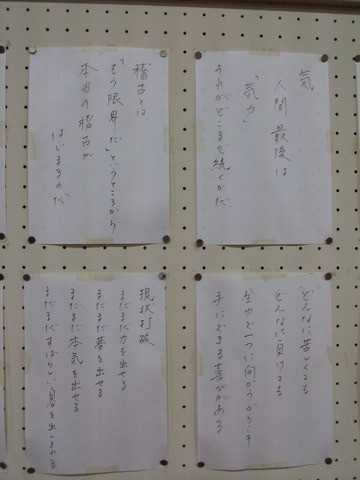 気
人間、最後は
「気力」
それがどこまで続くかだ
稽古とは、
「もう限界だ」というところから
本当の稽古が
はじまるのだ
どんなに苦しくても
どんなに負けても
全力で一つに向かうからこそ
手にできる喜びがある
現状打破
まだまだ力を出せる
まだまだ夢を出せる
まだまだ本気を出せる
まだまだすばらしい自分を出しきれる